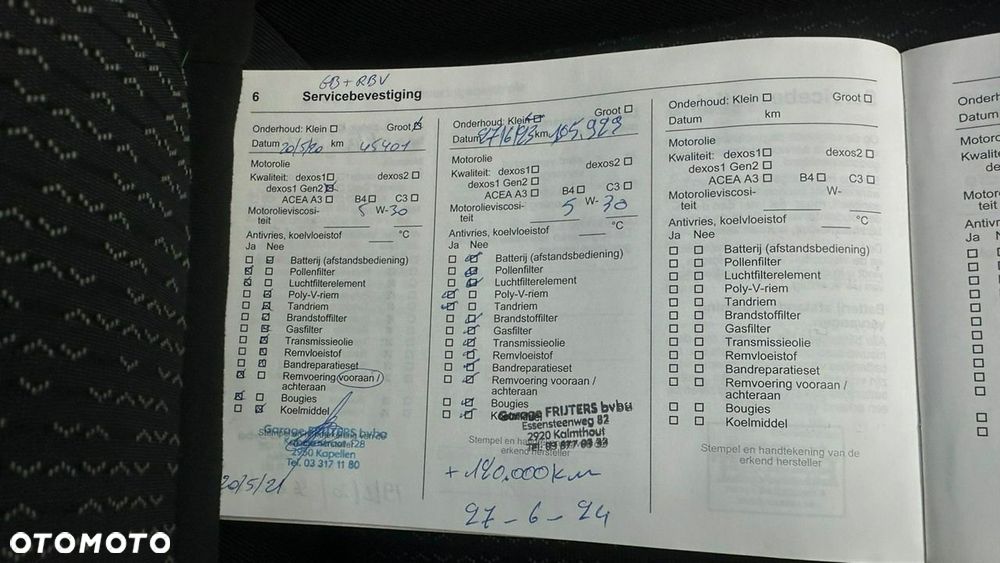 GB + RBV
6 Servicebevestiging
Onderhoud: Klein Groot
Datum 20/5/20 km 45401
Motorolie
Kwaliteit: dexos1 dexos2
dexos1 Gen2
ACEA A3 B4 C3
Motorolieviscosi-
teit 5 W-30
Antivries, koelvloeistof °C
Ja Nee
Batterij (afstandsbediening)
Pollenfilter
Luchtfilterelement
Poly-V-riem
Tandriem
Brandstoffilter
Gasfilter
Transmissieolie
Remvloeistof
Bandreparatieset
Remvoering vooraan /
achteraan
Bougies
Koelmiddel
Garage FRIJTERS bvba
2950 Kapellen
Tel. 03 317 11 80
20/5/21
Onderhoud: Klein Groot
Datum 27/6/23 km 105.923
Motorolie
Kwaliteit: dexos1 dexos2
dexos1 Gen2
ACEA A3 B4 C3
Motorolieviscosi-
teit 5 W-30
Antivries, koelvloeistof °C
Ja Nee
Batterij (afstandsbediening)
Pollenfilter
Luchtfilterelement
Poly-V-riem
Tandriem
Brandstoffilter
Gasfilter
Transmissieolie
Remvloeistof
Bandreparatieset
Remvoering vooraan /
achteraan
Bougies
Garage FRIJTERS bvba
Essensteenweg 82
2920 Kalmthout
Tel. 03 677 03 33
Stempel en handtekening van de
erkend hersteller
+ 120.000 km
27-6-24
Onderhoud: Klein Groot
Datum km
Motorolie
Kwaliteit: dexos1 dexos2
dexos1 Gen2
ACEA A3 B4 C3
Motorolieviscosi- W-
teit
Antivries, koelvloeistof °C
Ja Nee
Batterij (afstandsbediening)
Pollenfilter
Luchtfilterelement
Poly-V-riem
Tandriem
Brandstoffilter
Gasfilter
Transmissieolie
Remvloeistof
Bandreparatieset
Remvoering vooraan /
achteraan
Bougies
Koelmiddel
Stempel en handtekening van de
erkend hersteller
Datum
Ja
OTOMOTO